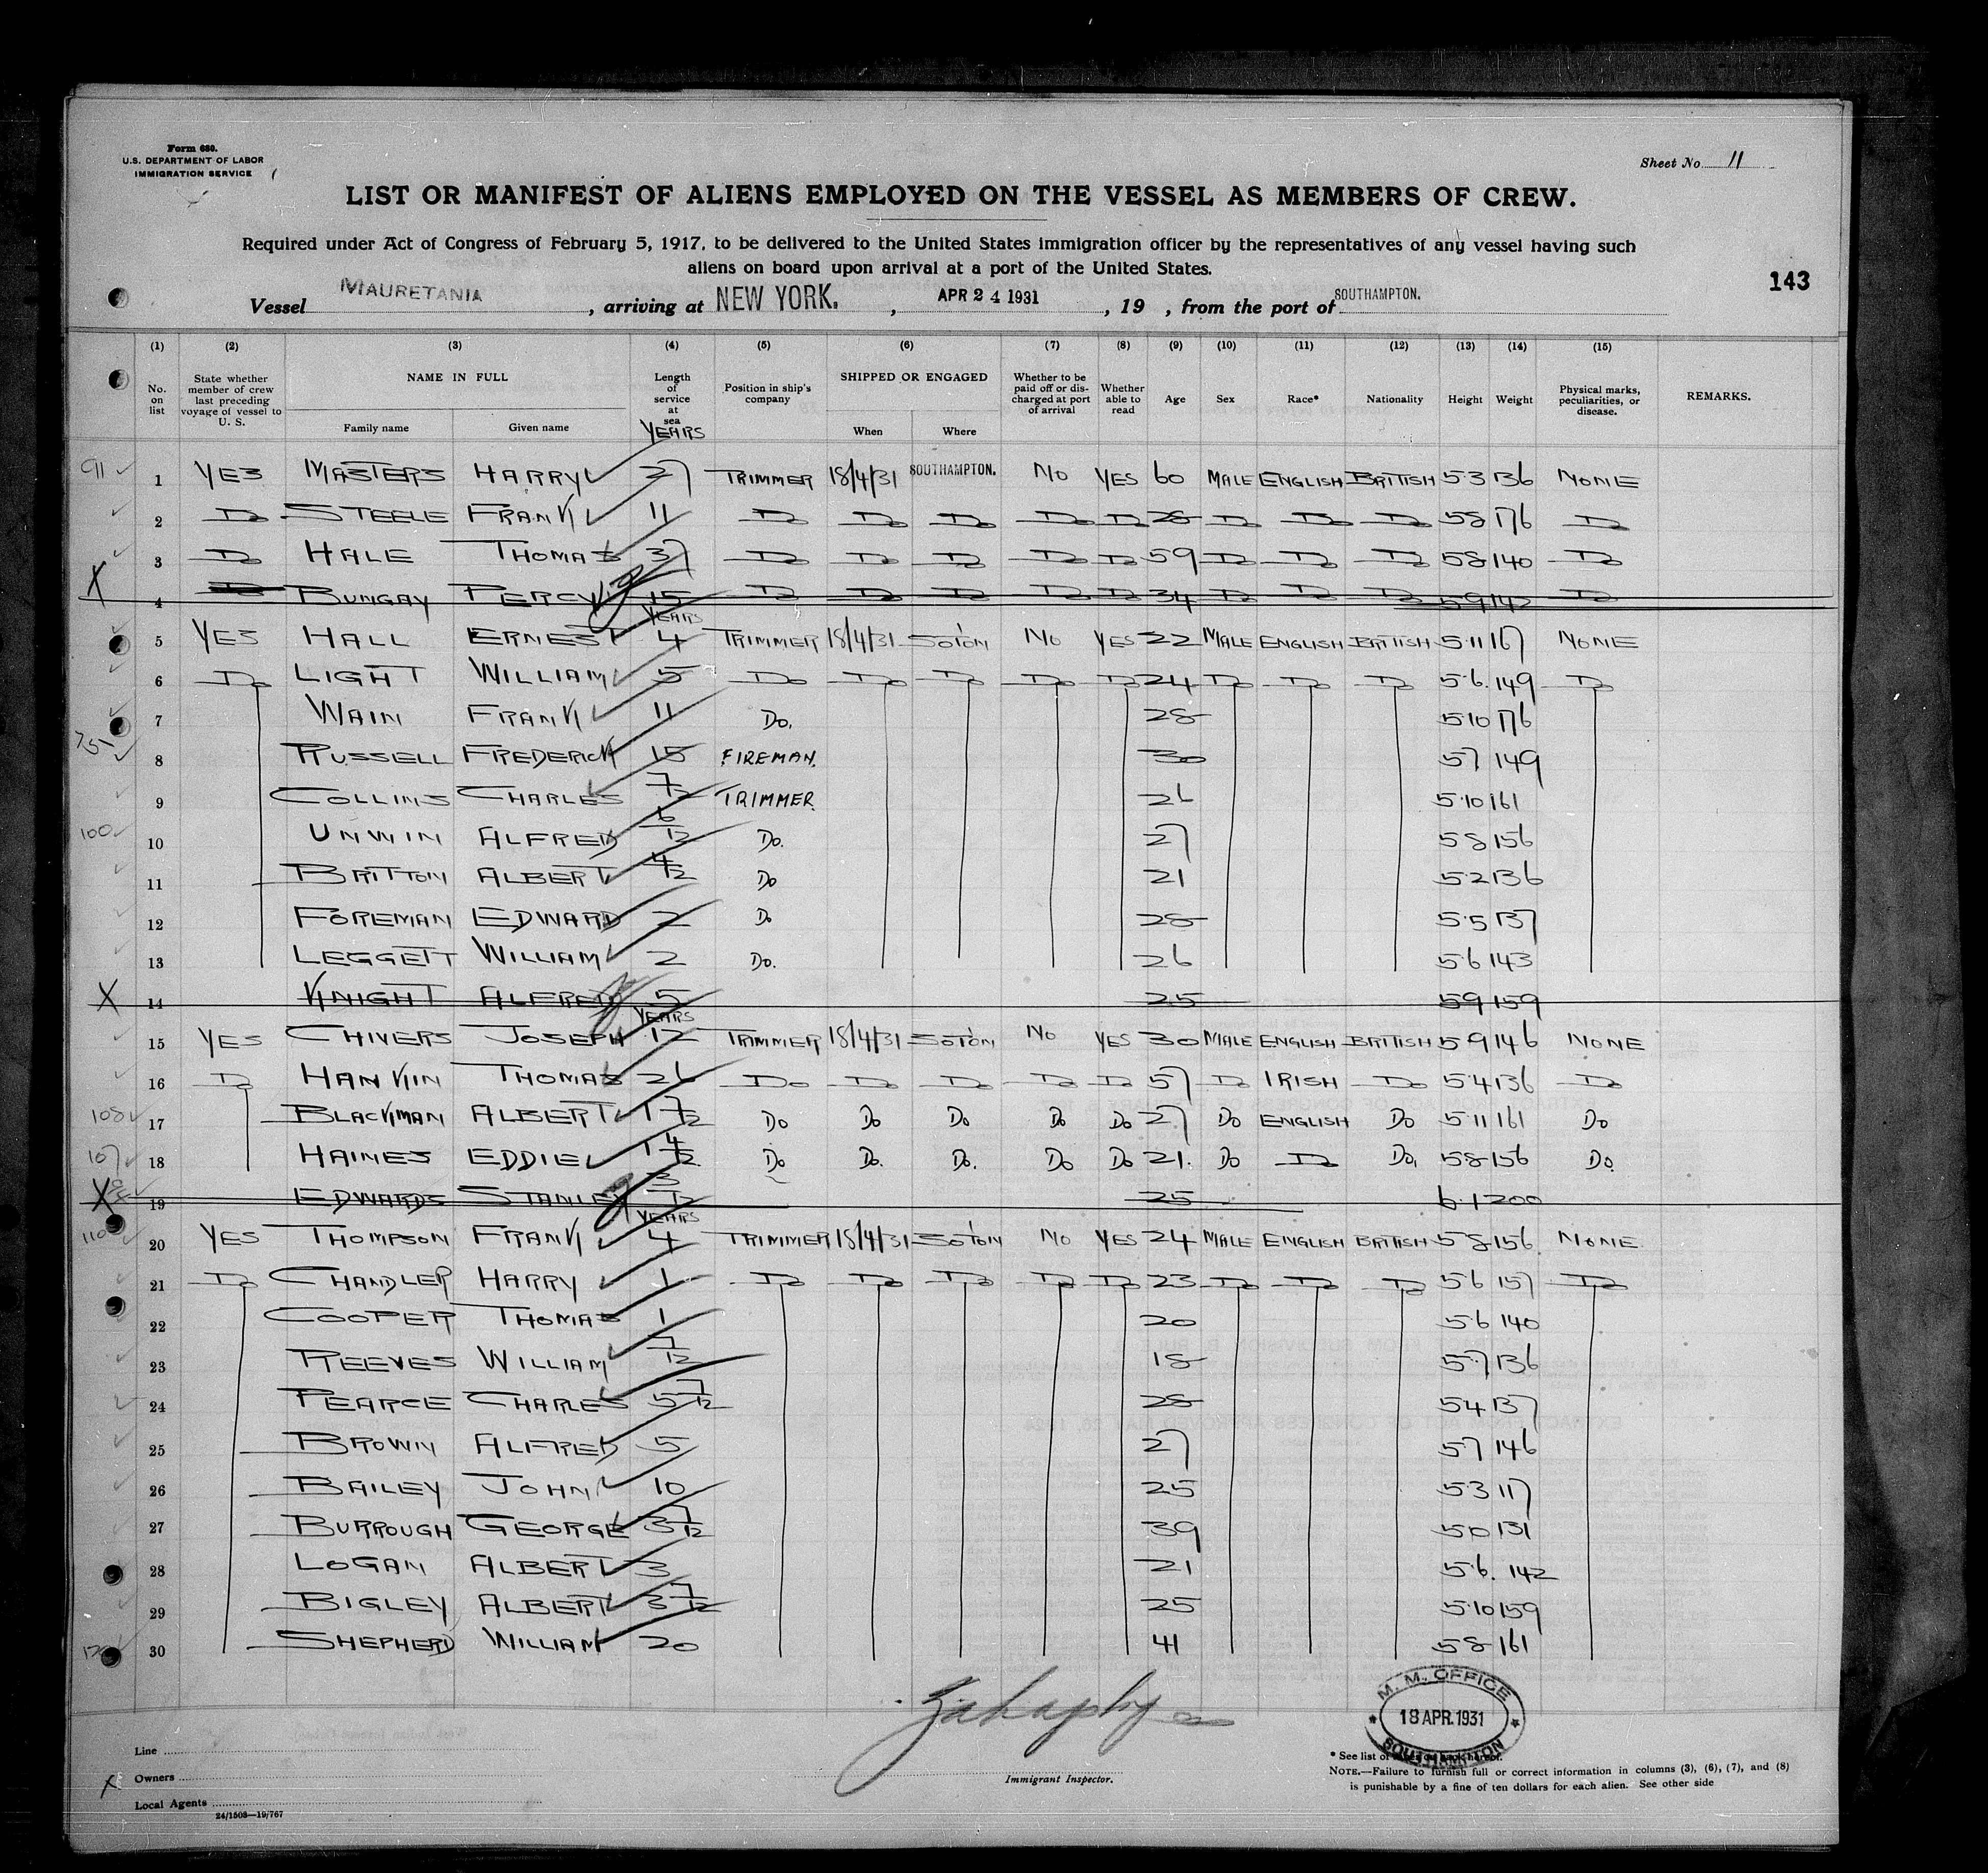 Form 680.
U.S. DEPARTMENT OF LABOR
IMMIGRATION SERVICE
Sheet No 11
LIST OR MANIFEST OF ALIENS EMPLOYED ON THE VESSEL AS MEMBERS OF CREW.
Required under Act of Congress of February 5, 1917, to be delivered to the United States immigration officer by the representatives of any vessel having such
aliens on board upon arrival at a port of the United States.
143
Vessel MAURETANIA, arriving at NEW YORK., APR 24 1931, 19 , from the port of SOUTHAMPTON.
(1) (2) (3) (4) (5) (6) (7) (8) (9) (10) (11) (12) (13) (14) (15)
No. on list State whether member of crew last preceding voyage of vessel to U. S. NAME IN FULL Length of service at sea Position in ship's company SHIPPED OR ENGAGED Whether to be paid off or discharged at port of arrival Whether able to read Age Sex Race* Nationality Height Weight Physical marks, peculiarities, or disease. REMARKS.
Family name Given name YEARS When Where
91 1 YES MASTERS HARRY 37 TRIMMER 18/4/31 SOUTHAMPTON. NO YES 60 MALE ENGLISH BRITISH 5.3 136 NONE
2 Do STEELE FRANK 11 Do Do Do Do Do 28 Do Do Do 5.8 176 Do
3 Do HALE THOMAS 37 Do Do Do Do Do 59 Do Do Do 5.8 140 Do
X 4 Do BUNGAY PERCY 15 Do Do Do Do Do 34 Do Do Do 5.9 142 Do
YEARS
5 YES HALL ERNEST 4 TRIMMER 18/4/31 SOTON NO YES 22 MALE ENGLISH BRITISH 5.11 167 NONE
6 Do LIGHT WILLIAM 5 Do Do Do Do Do 24 Do Do Do 5.6. 149 Do
7 WAIN FRANK 11 Do. 28 5.10 176
75 8 RUSSELL FREDERICK 15 FIREMAN. 30 5.7 149
9 COLLINS CHARLES 7/12 TRIMMER. 26 5.10 161
100 10 UNWIN ALFRED 6/12 Do. 27 5.8 156
11 BRITTON ALBERT 4/12 Do 21 5.2 136
12 FOREMAN EDWARD 2 Do 28 5.5 137
13 LEGGETT WILLIAM 2 Do. 26 5.6 143
X 14 KNIGHT ALFRED 5 25 5.9 159
YEARS
15 YES CHIVERS JOSEPH 12 TRIMMER 18/4/31 SOTON NO YES 30 MALE ENGLISH BRITISH 5.9 146 NONE
16 Do HANKIN THOMAS 26 Do Do Do Do Do 57 Do IRISH Do 5.4 136 Do
108 17 BLACKMAN ALBERT 1 7/12 Do Do Do Do Do 27 Do ENGLISH Do 5.11 161 Do
107 18 HAINES EDDIE 1 4/12 Do Do. Do. Do Do 21. Do Do Do, 5.8 156 Do.
X 19 EDWARDS STANLEY 3/12 25 6.1 200
YEARS
110 20 YES THOMPSON FRANK 4 TRIMMER 18/4/31 SOTON NO YES 24 MALE ENGLISH BRITISH 5.8 156. NONE
21 Do CHANDLER HARRY 1 Do Do Do Do Do 23 Do Do Do 5.6 157 Do
22 COOPER THOMAS 1 20 5.6 140
23 REEVES WILLIAM 7/12 18 5.7 136
24 PEARCE CHARLES 5 7/12 28 5.4 137
25 BROWN ALFRED 5 27 5.7 146
26 BAILEY JOHN 10 25 5.3 117
27 BURROUGH GEORGE 3 7/12 39 5.0 131
28 LOGAN ALBERT 3 21 5.6. 142
29 BIGLEY ALBERT 3 7/12 25 5.10 159
30 SHEPHERD WILLIAM 20 41 5.8 161
M. M. OFFICE
18 APR. 1931
SOUTHAMPTON
Line
Owners
Local Agents
24/1508—19/767
Immigrant Inspector.
* See list of races on back hereof.
NOTE.—Failure to furnish full or correct information in columns (3), (6), (7), and (8)
is punishable by a fine of ten dollars for each alien. See other side